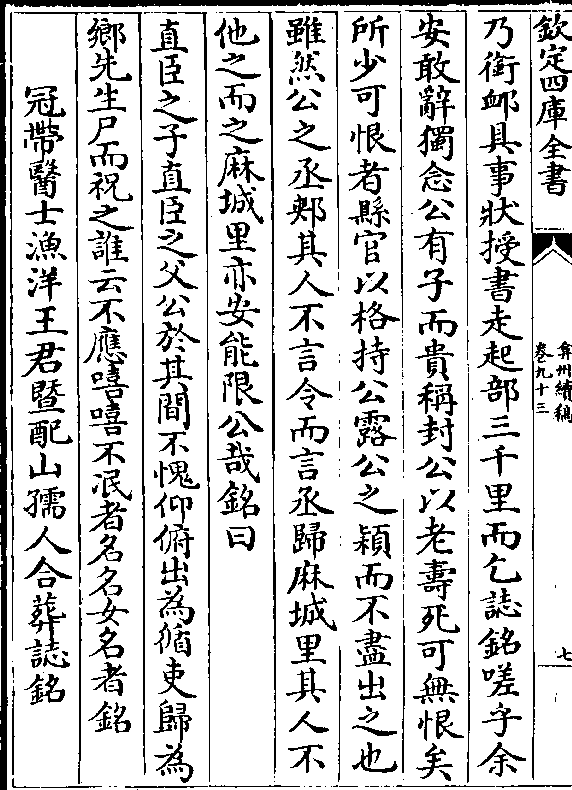 欽定四庫全書
弇州續稿
卷九十三
七
乃銜䘏具事狀授書走起部三千里而乞誌銘嗟乎余
安敢辭獨念公有子而貴稱封公以老壽死可無恨矣
所少可恨者縣官以格持公露公之穎而不盡出之也
雖然公之丞郟其人不言令而言丞歸麻城里其人不
他之而之麻城里亦安能限公哉銘曰
直臣之子直臣之父公於其間不愧仰俯出為循吏歸為
鄉先生尸而祝之誰云不應嘻嘻不泯者名名女名者銘
冠帶醫士漁洋王君暨配山孺人合葬誌銘